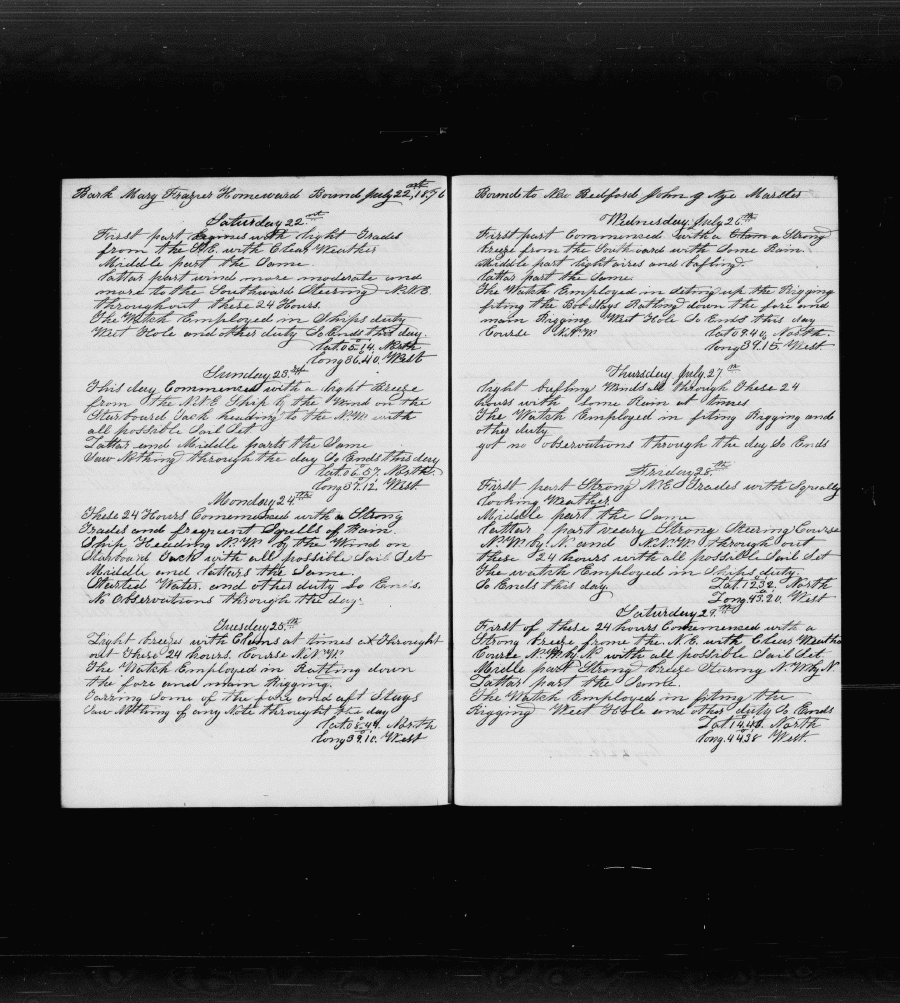 Bark Mary Frazier Homeward Bound July 22nd, 1876
Saturday 22nd
First part with light Trades
from the with Clear Weather
Middle part the Same
Lattar part wind more moderate and
more to the Southward Steering N.N.E.
throughout these 24 Hours.
The Watch Employed in Ships duty
West Hole and other duty So Ends this day.
Lat. 05.14. North
Long 36.40. West
Sunday 23rd
This day Commenced with a light Breeze
from the Ship by the Wind on the
Starboard Tack heading to the N.W. with
all possible Sail Set
Lattar and Middle parts the Same
Saw Nothing through the day So Ends this day
Lat. 06.57. North
Long 37.12. West
Monday 24th
These 24 Hours Commenced with a Strong
Trades and frequent Squlls of Rain
Ship Heading N.W. by the Wind on
Starboard Tack with all possible Sail Set
Middle and lattars the Same.
Started Water. and other duty So Ends.
No Observations through the day.
Tuesday 25th
Light breezs with at times Throught
out These 24 hours. Course N.N.W.
The Watch Employed in Ratting down
the fore and main Rigging.
Tarring Some of the fore and aft Stays
Saw Nothing of any Note throught the day
Lat. 08.44. North
Long 39.10. West
Bound to New Bedford John Nye Marster
Wednesday. July 26th
First part Commenced with a Strong
breeze from the Southward with Some Rain.
Middle part light aires and bafling.
Lattar part the Same
The Watch Employed in up the Rigging
fiting the Bobstays Ratting down the fore and
main Rigging West Hole So Ends this day
Course N.N.W. Lat 09.40. North.
Long 39.15. West
Thursday July 27th
light bafling Winds all through These 24
hours with some Rain at times
The Watch Employed in fiting Rigging and
other duty
got no observations through the day So Ends
Friday 28th
First part Strong N.E. Trades with Squally
looking Weather
Middle part the Same
Lattar part veary Strong Steering Course
N.W. by N. and N.N.W. through out
these 24 hours with all possible Sail Set
The watch Employed in Ships duty
So Ends this day Lat 12.32. North
Long. 43.20. West
Saturday 29th
First of these 24 hours Commenced with a
Strong breeze frome the N.E. with Clear Weather
Course N.W. by N. with all possible Sail Set.
Middle part Strong breeze N.W. by N
Lattar part the Same
The Watch Employed in fiting the
Rigging West Hole and other duty So Ends
Lat. 14.40. North
Long. 44.38 West.